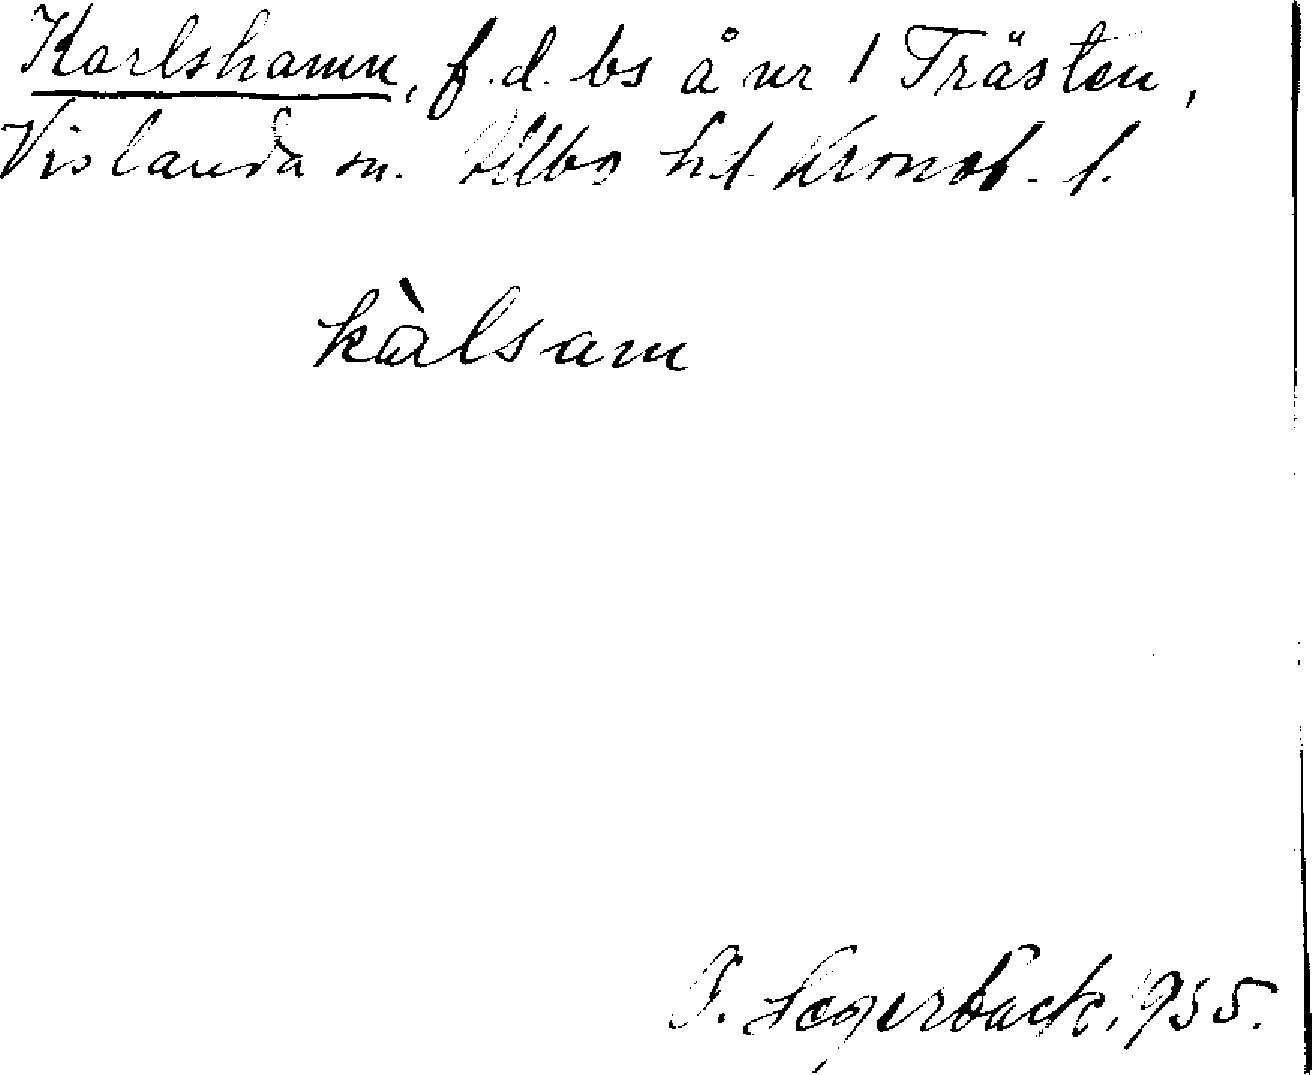 Karlshamn, f.d. bs å nr 1 Trästen,
Vislanda sn. Allbo hd. Kronob. l.
kàlsam
P. Segerbäck, 1955.